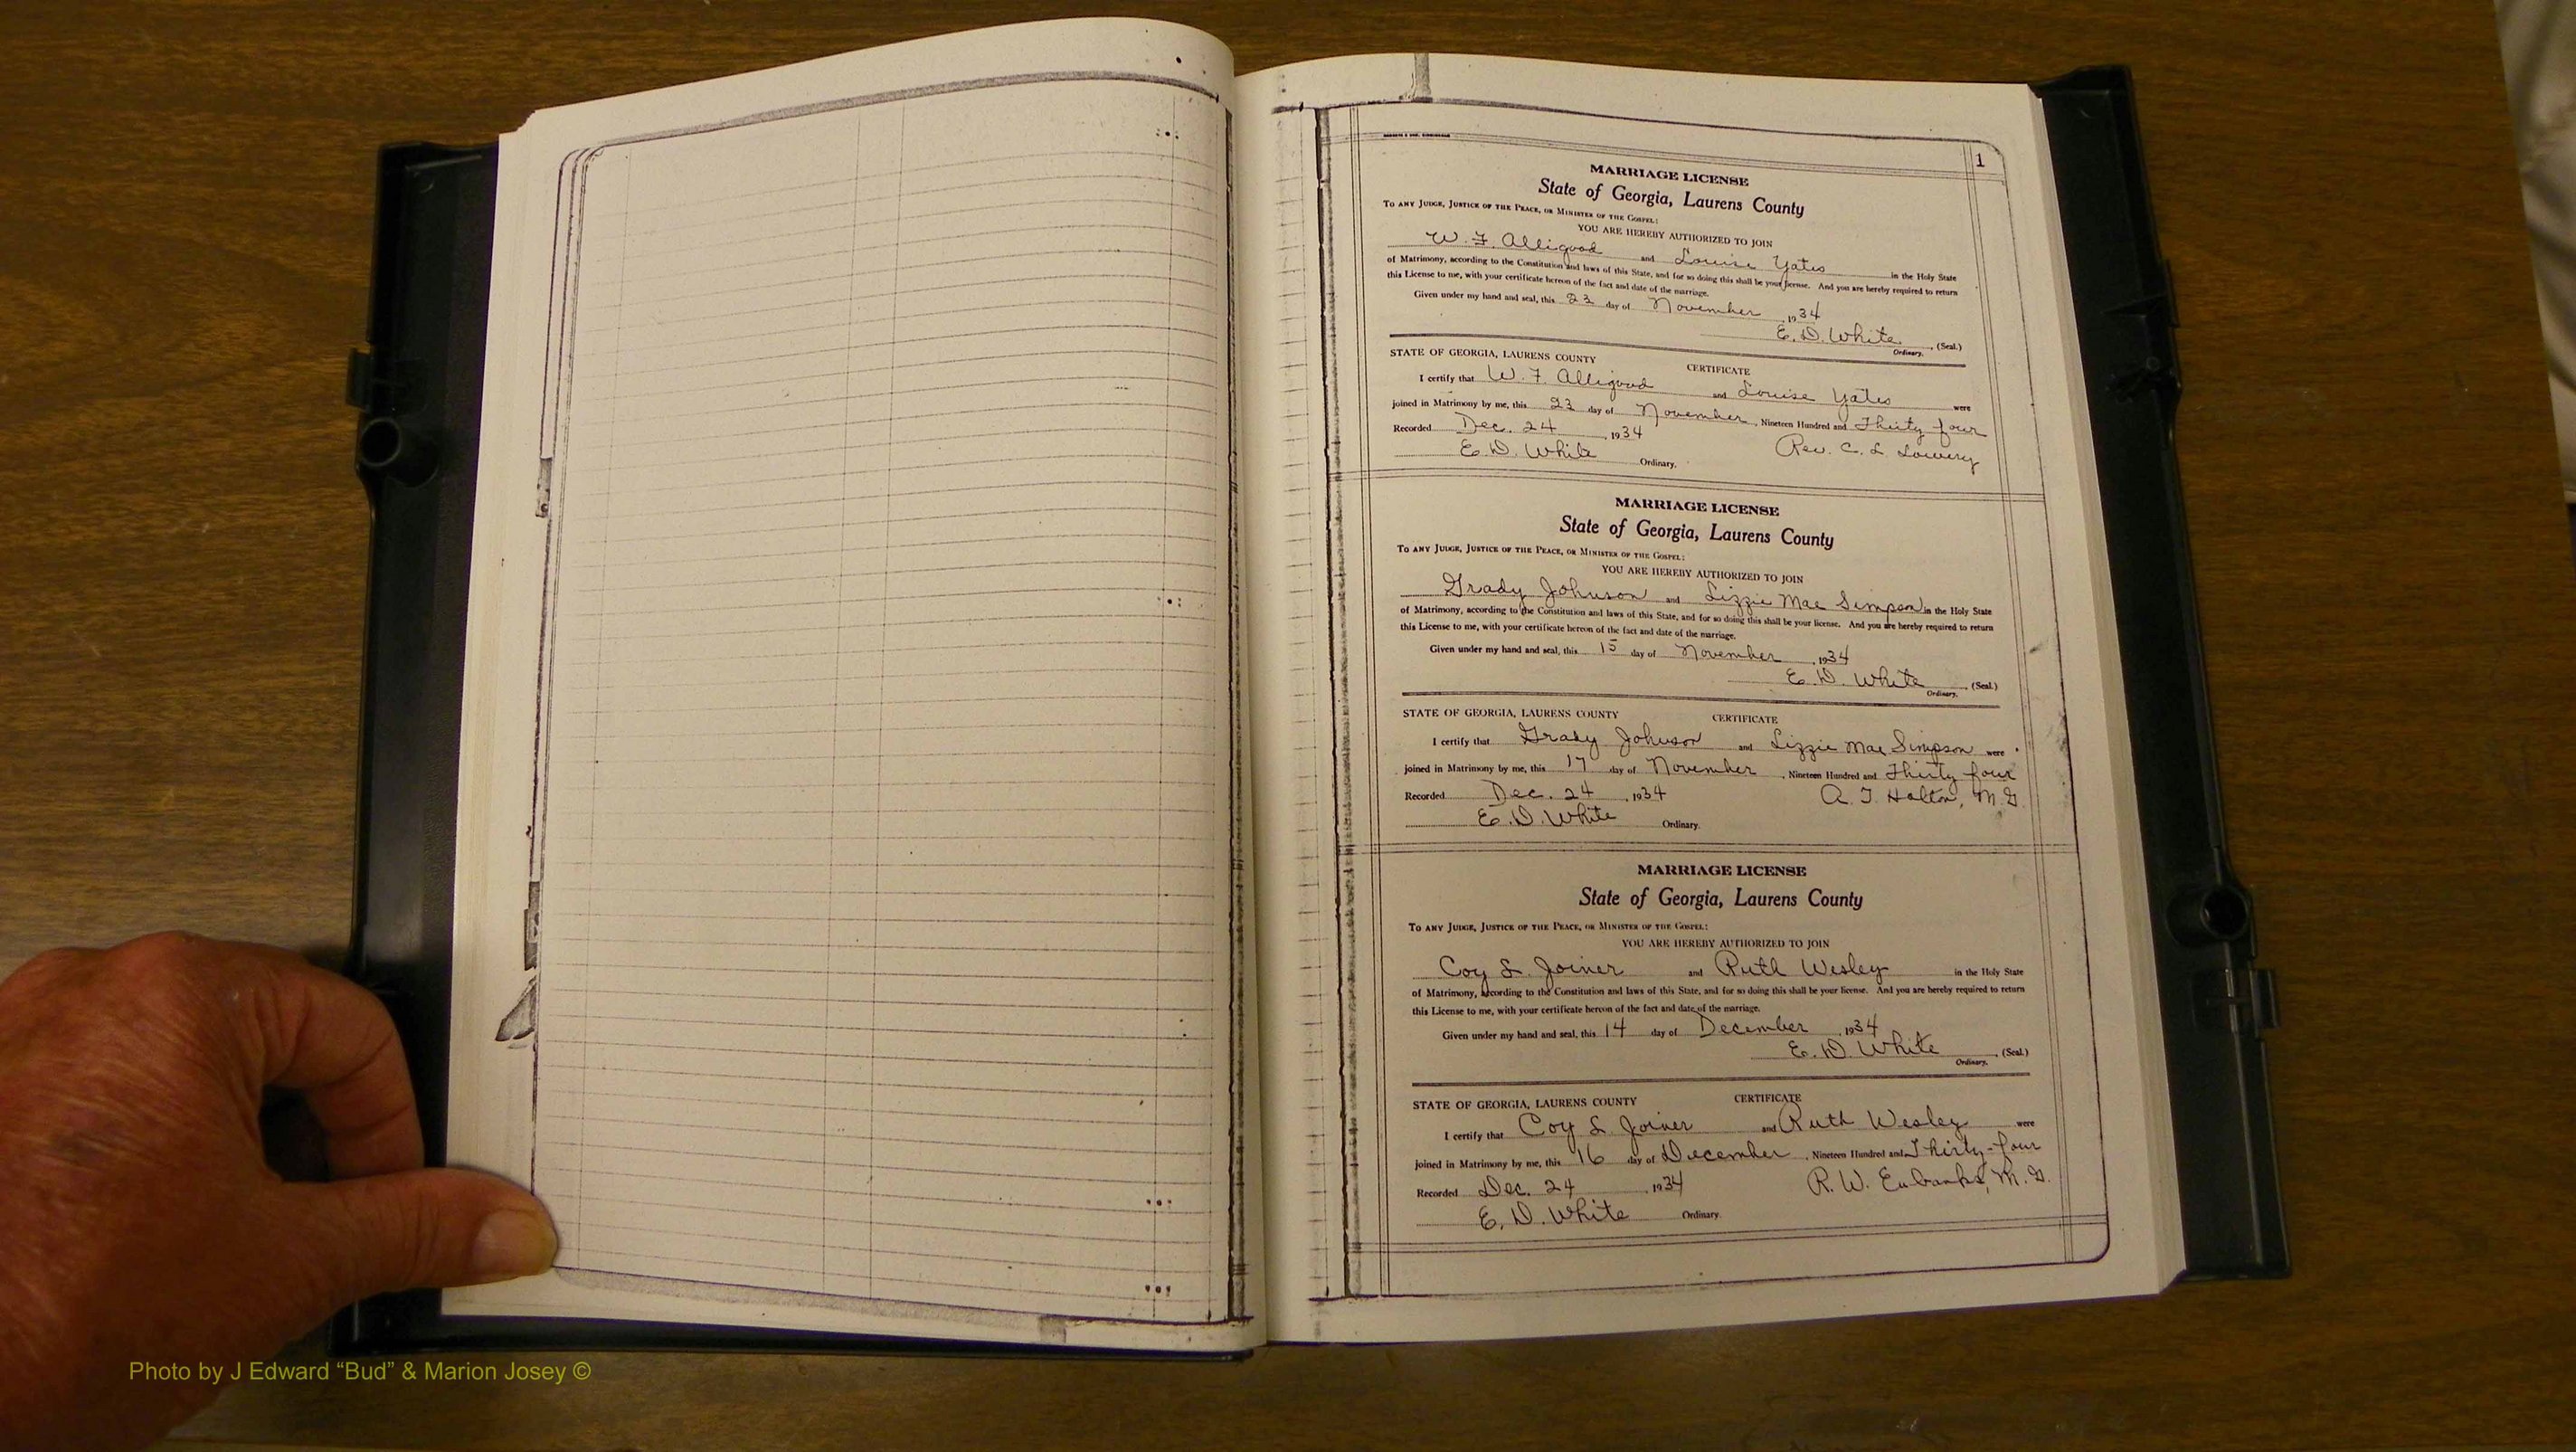 1
MARRIAGE LICENSE
State of Georgia, Laurens County
To any Judge, Justice of the Peace, or Minister of the Gospel:
YOU ARE HEREBY AUTHORIZED TO JOIN
W. F. Alligood and Louise Yates in the Holy State
of Matrimony, according to the Constitution and laws of this State, and for so doing this shall be your license. And you are hereby required to return
this License to me, with your certificate hereon of the fact and date of the marriage.
Given under my hand and seal, this 23 day of November, 1934
E. D. White, (Seal.)
Ordinary.
STATE OF GEORGIA, LAURENS COUNTY CERTIFICATE
I certify that W. F. Alligood and Louise Yates were
joined in Matrimony by me, this 23 day of November, Nineteen Hundred and Thirty four
Recorded Dec. 24, 1934 Rev. C. L. Lowery
E. D. White Ordinary.
MARRIAGE LICENSE
State of Georgia, Laurens County
To any Judge, Justice of the Peace, or Minister of the Gospel:
YOU ARE HEREBY AUTHORIZED TO JOIN
Grady Johnson and Lizzie Mae Simpson in the Holy State
of Matrimony, according to the Constitution and laws of this State, and for so doing this shall be your license. And you are hereby required to return
this License to me, with your certificate hereon of the fact and date of the marriage.
Given under my hand and seal, this 15 day of November, 1934
E. D. White, (Seal.)
Ordinary.
STATE OF GEORGIA, LAURENS COUNTY CERTIFICATE
I certify that Grady Johnson and Lizzie Mae Simpson were
joined in Matrimony by me, this 17 day of November, Nineteen Hundred and Thirty four
Recorded Dec. 24, 1934 A. T. Holton, M. G.
E. D. White Ordinary.
MARRIAGE LICENSE
State of Georgia, Laurens County
To any Judge, Justice of the Peace, or Minister of the Gospel:
YOU ARE HEREBY AUTHORIZED TO JOIN
Coy L. Joiner and Ruth Wesley in the Holy State
of Matrimony, according to the Constitution and laws of this State, and for so doing this shall be your license. And you are hereby required to return
this License to me, with your certificate hereon of the fact and date of the marriage.
Given under my hand and seal, this 14 day of December, 1934
E. D. White, (Seal.)
Ordinary.
STATE OF GEORGIA, LAURENS COUNTY CERTIFICATE
I certify that Coy L. Joiner and Ruth Wesley were
joined in Matrimony by me, this 16 day of December, Nineteen Hundred and Thirty-four
Recorded Dec. 24, 1934 R. W. Eubanks, M. G.
E. D. White Ordinary.
Photo by J Edward “Bud” & Marion Josey ©